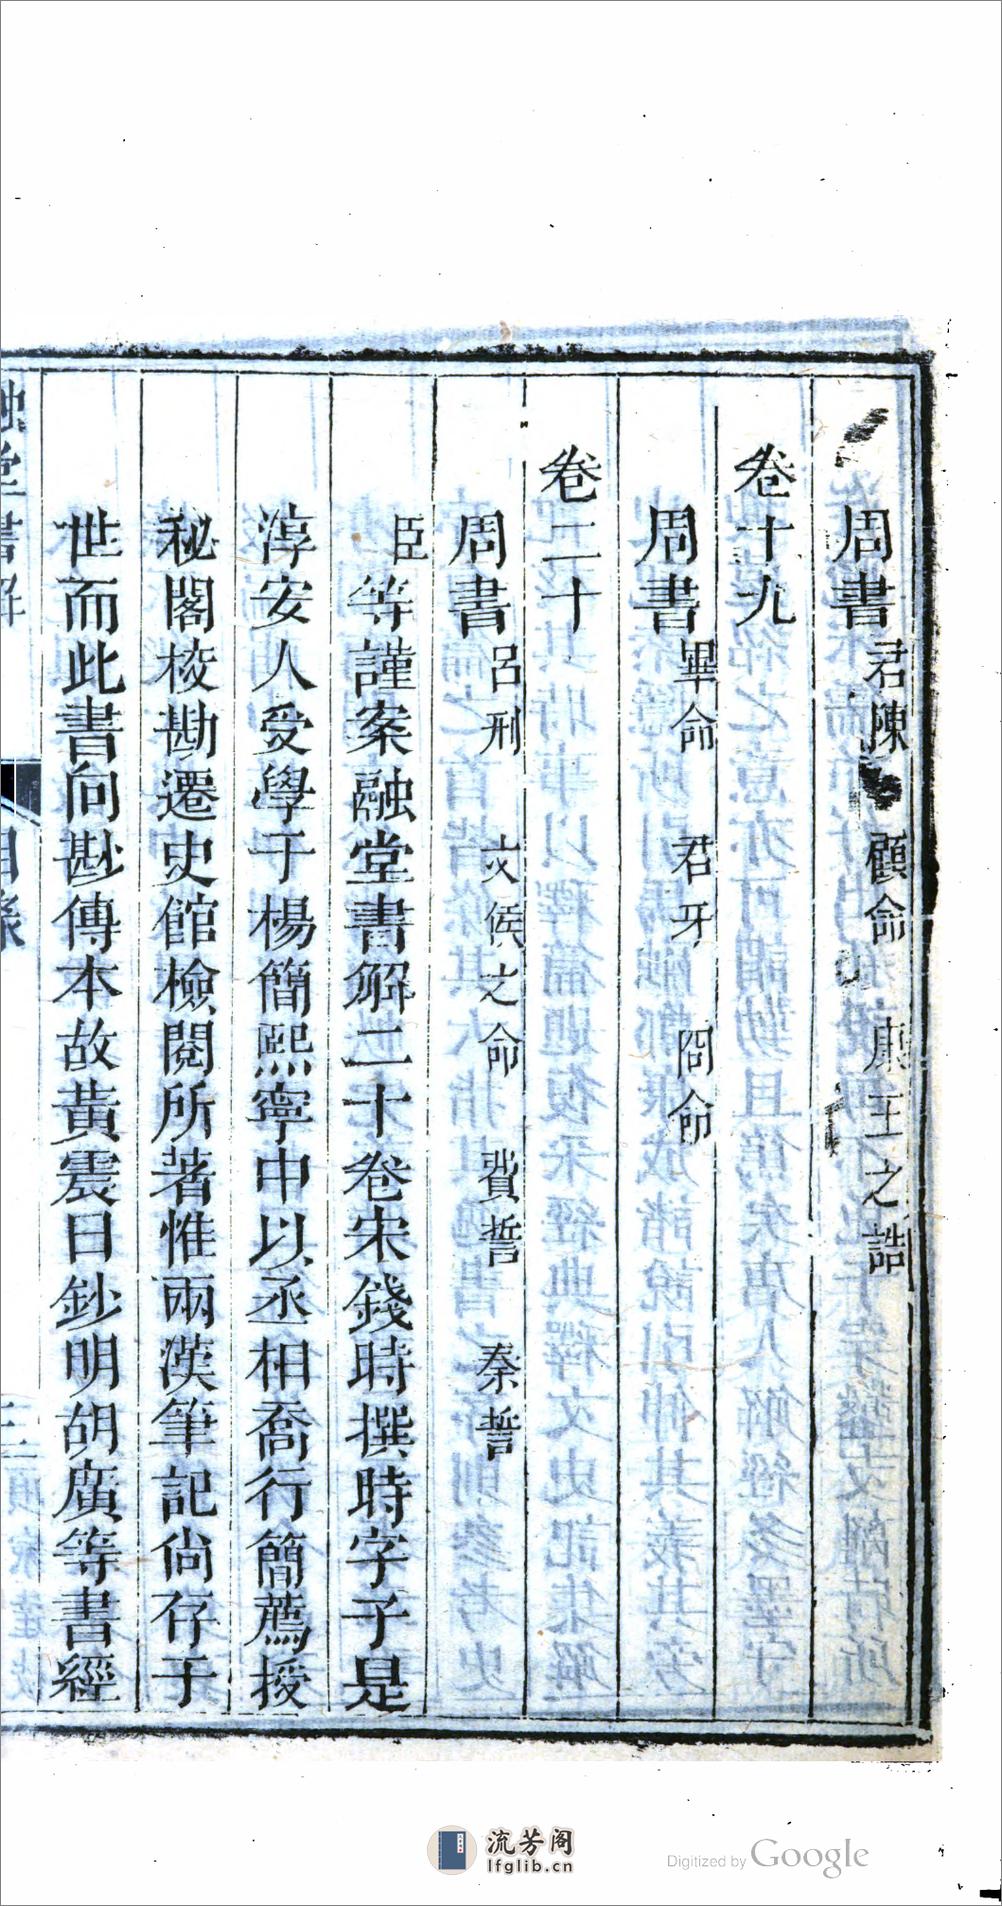 周書君陳 顧命 康王之誥
卷十九
周書畢命 君牙 冏命
卷二十
周書呂刑 文侯之命 費誓 秦誓
臣等謹案融堂書解二十卷宋錢時撰時字子是
淳安人受學于楊簡熙寧中以丞相喬行簡薦授
秘閣校勘遷史館檢閱所著惟兩漢筆記尚存于
世而此書向尠傳本故黃震日鈔明胡廣等書經
融堂書解
目錄
三
流芳阁
lfglib.cn
Digitized by Google